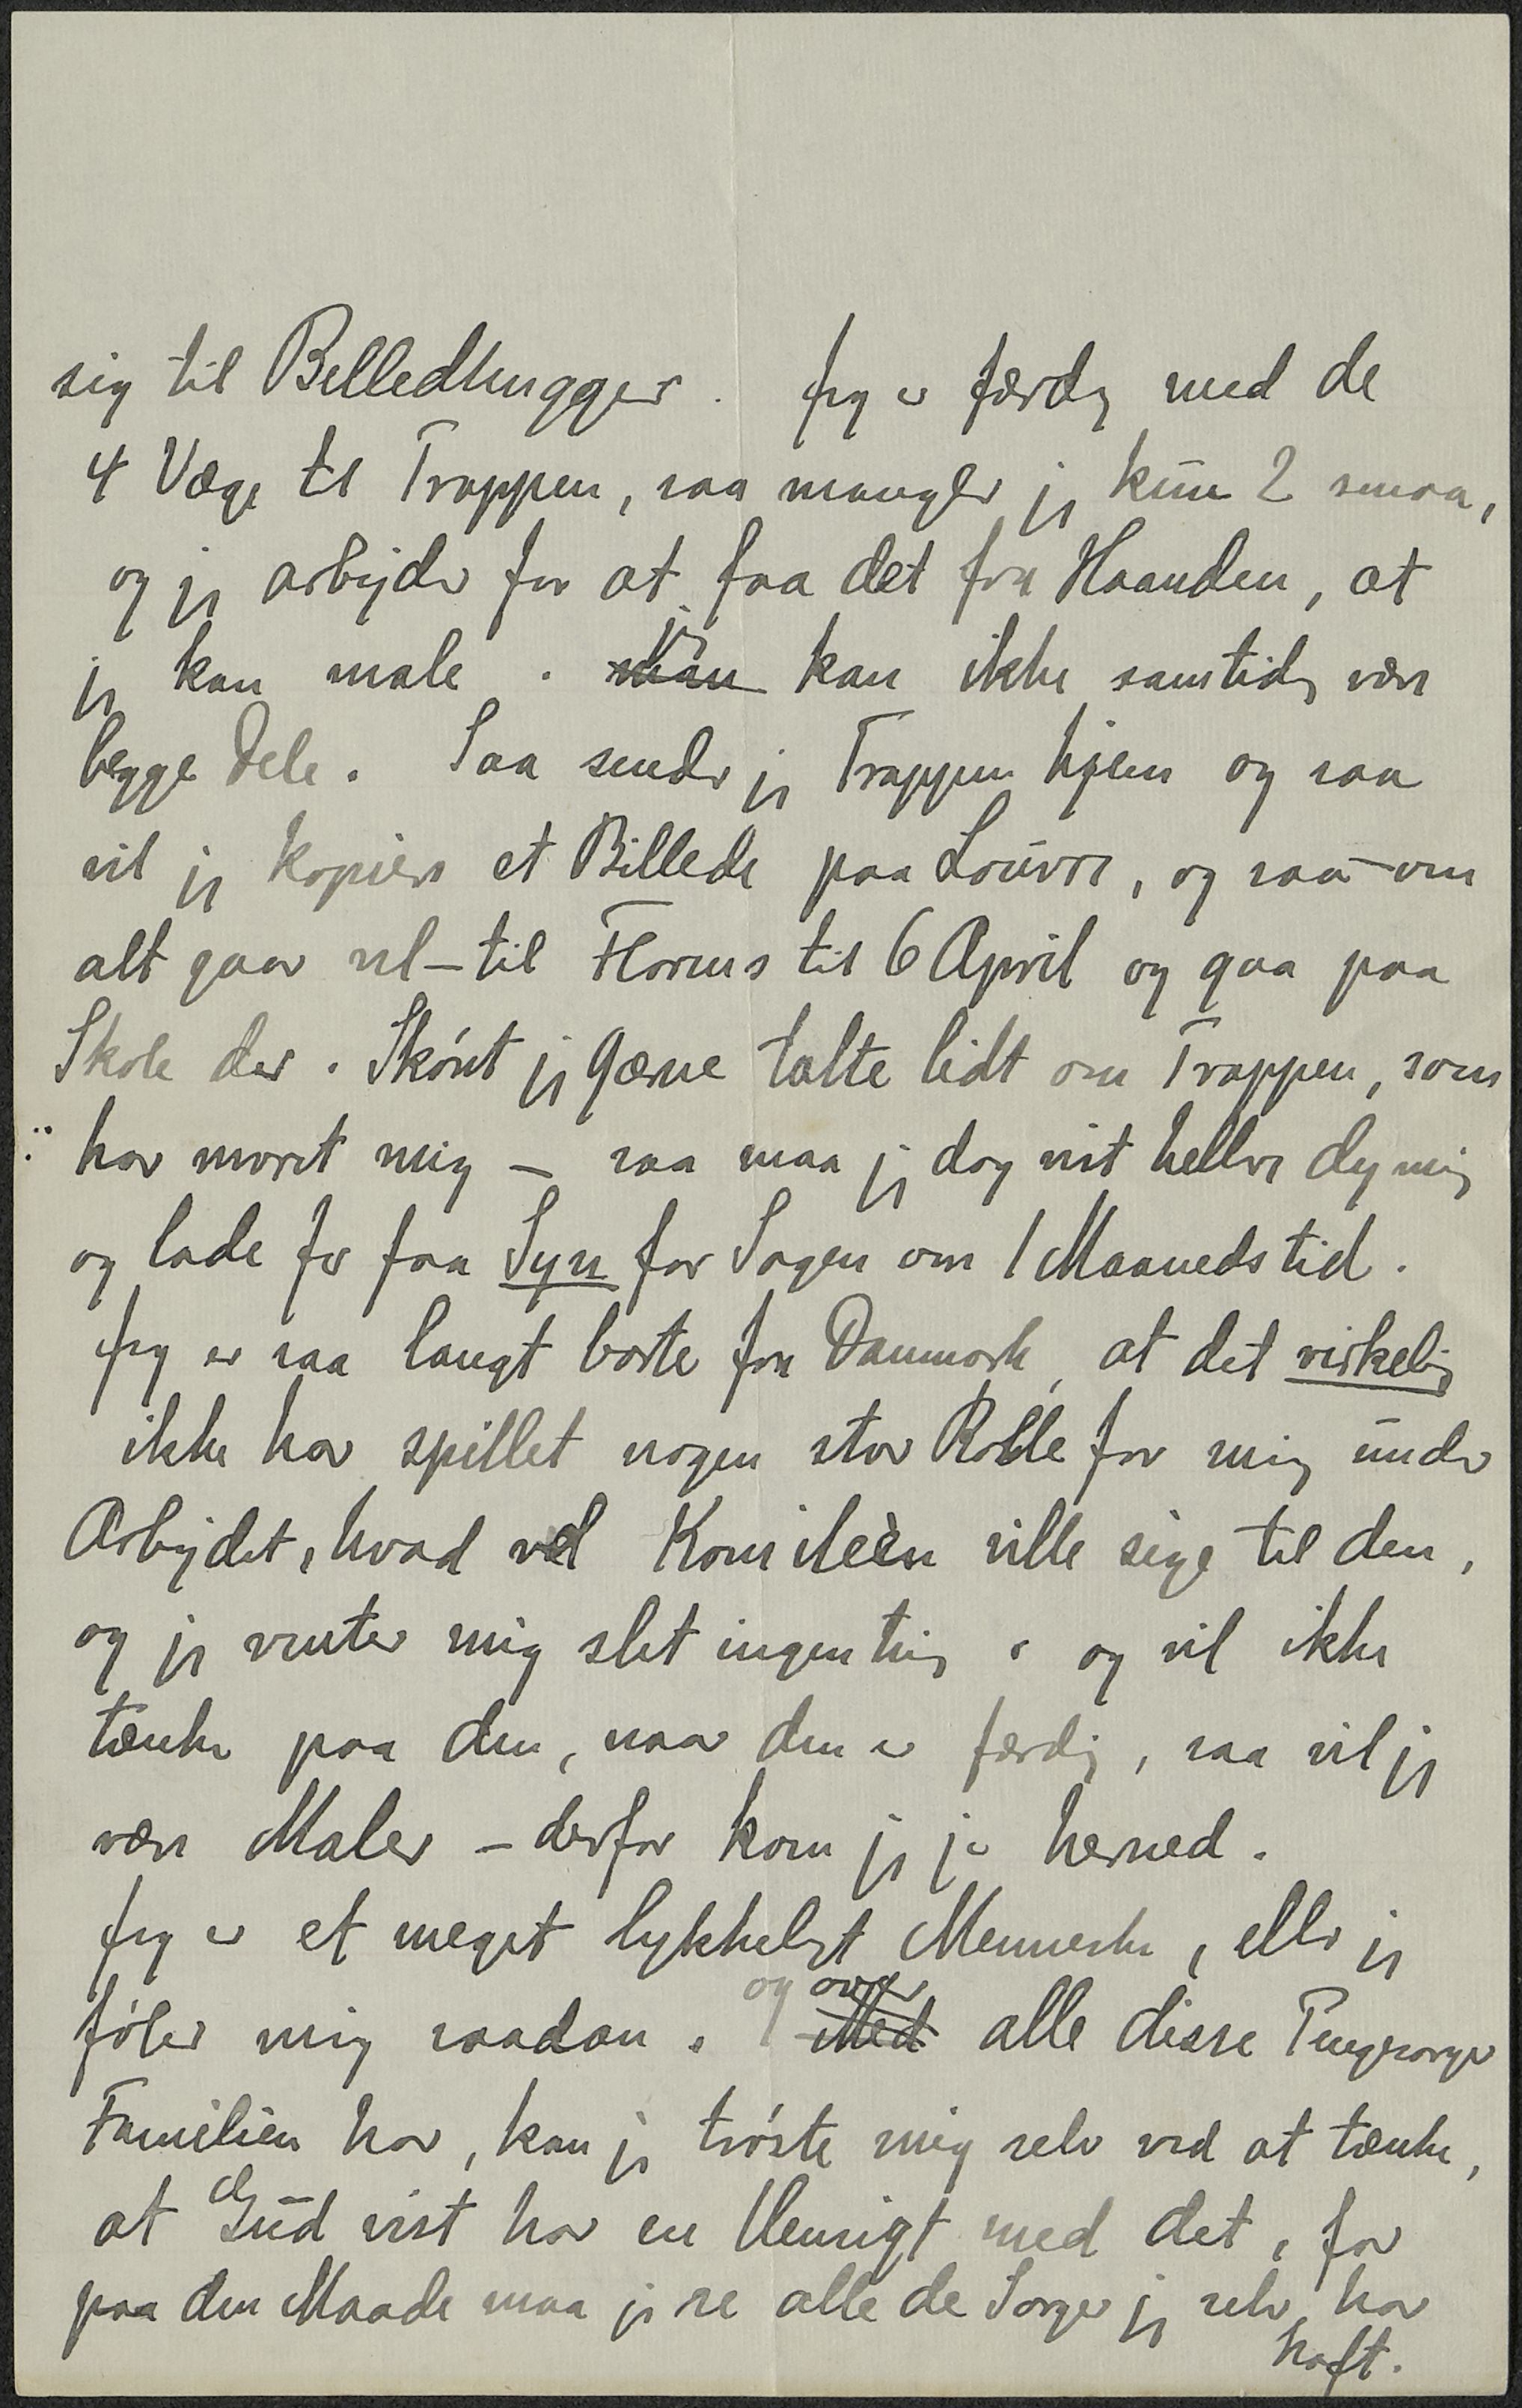 sig til Billedhugger. Jeg er færdig med de
4 Væge til Trappen, saa mangler jeg kun 2 smaa,
og jeg arbejder for at faa det fra Haanden, at
jeg kan male. man jeg kan ikke samtidig være
begge Dele. Saa sender jeg Trappen hjem og saa
vil jeg kopiere et Billede paa Louvre, og saa – om
alt gaar vel – til Florens til 6 April og gaa paa
Skole der. Skønt jeg gærne talte lidt om Trappen, som
har moret mig – saa maa jeg dog vist hellere dy mig
og lade Jer faa Syn for Sagen om 1 Maaneds tid.
Jeg er saa langt borte fra Danmark, at det virkelig
ikke har spillet nogen stor Rolle for mig under
Arbejdet, hvad vel Komiteèn ville sige til den,
og jeg venter mig slet ingenting, og vil ikke
tænke paa den, naar den er færdig, saa vil jeg
være Maler – derfor kom jeg jo herned.
Jeg er et meget lykkeligt Menneske, eller jeg
føler mig saadan. og over Med alle disse Pengesorger
Familien har, kan jeg trøste mig selv ved at tænke,
at Gud vist har en Hensigt med det, for
paa den Maade maa jeg se alle de Sorger jeg selv har
haft.